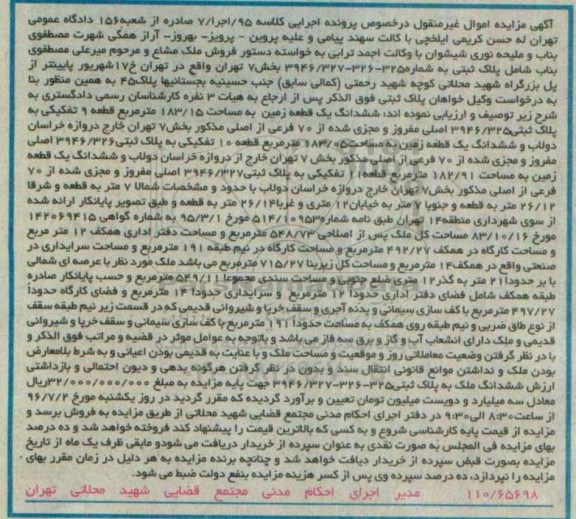 آگهی مزایده اموال غیرمنقول درخصوص پرونده اجرایی کلاسه ۹۵/اجرا/۷ صادره از شعبه۱۵۶ دادگاه عمومی
تهران له حسن کریمی ایلخچی با کالت سهند پیامی و علیه پروین – پرویز- بهروز– آراز همگی شهرت مصطفوی
بناب و ملیحه نوری شیشوان با وکالت احمد ترابی به خواسته دستور فروش ملک مشاع و مرحوم میرعلی مصطفوی
بناب شامل پلاک ثبتی به شماره۳۲۵-۳۲۶-۳۹۴۶/۳۲۷ بخش۷ تهران واقع در تهران خ۱۷شهریور پایینتر از
پل بزرگراه شهید محلاتی کوچه شهید رحمتی (کمالی سابق) جنب حسینیه بجستانیها پلاک۴۵ به همین منظور بنا
به درخواست وکیل خواهان پلاک ثبتی فوق الذکر پس از ارجاع به هیات ۳ نفره کارشناسان رسمی دادگستری به
شرح زیر توصیف و ارزیابی نموده اند: ششدانگ یک قطعه زمین به مساحت ۱۸۳/۱۵ مترمربع قطعه ۹ تفکیکی به
پلاک ثبتی۳۹۴۶/۳۲۵ اصلی مفروز و مجزی شده از ۷۰ فرعی از اصلی مذکور بخش۷ تهران خارج دروازه خراسان
دولاب و ششدانگ یک قطعه زمین به مساحت۱۸۳/۰۵ مترمربع قطعه ۱۰ تفکیکی به پلاک ثبتی۳۹۴۶/۳۲۶ اصلی
مفروز و مجزی شده از ۷۰ فرعی از اصلی مذکور بخش ۷ تهران خارج از دروازه خراسان دولاب و ششدانگ یک قطعه
زمین به مساحت ۱۸۲/۹۱ مترمربع قطعه۱۱ تفکیکی به پلاک ثبتی۳۹۴۶/۳۲۷ اصلی مفروز و مجزی شده از ۷۰
فرعی از اصلی مذکور بخش۷ تهران خارج دروازه خراسان دولاب با حدود و مشخصات شمالا ۷ متر به قطعه و شرقا
۲۶/۱۲ متر به قطعه و جنوبا ۷ متر به خیابان۱۲ متری و غربا۲۶/۱۴ متر به قطعه و طبق تصویر پایانکار ارائه شده
از سوی شهرداری منطقه۱۴ تهران طبق نامه شماره۵۱۴/۱۰۹۵۳ مورخ ۹۵/۳/۱ به شماره گواهی ۱۴۲۰۶۹۴۱۵
مورخ ۸۳/۱۰/۱۶ مساحت کل ملک پس از اصلاحی ۵۴۸/۷۳ مترمربع و مساحت دفتر اداری همکف ۱۲ متر مربع
و مساحت کارگاه در همکف ۴۹۲/۲۷ مترمربع و مساحت کارگاه در نیم طبقه ۱۹۱ مترمربع و مساحت سرایداری در
صنعتی واقع در همکف۱۴ مترمربع و مساحت کل زیربنا ۷۱۵/۲۷ مترمربع می باشد ملک مورد نظر با عرصه ای شمالی
با بر حدودا۲۱ متر به گذر۱۲ متری ضلع جنوبی و مساحت سندی مجموعا ۵۴۹/۱۱ مترمربع و حسب پایانکار صادره
طبقه همکف شامل فضای دفتر اداری حدودا ۱۲ مترمربع و سرایداری حدودا ۱۴ مترمربع و فضای کارگاه حدودا
۴۹۷/۲۷ مترمربع با کف سازی سیمانی و بدنه آجری و سقف خرپا و شیروانی قدیمی که در قسمت زیر نیم طبقه سقف
از نوع طاق ضربی و نیم طبقه روی همکف به مساحت حدودا ۱۹۱ مترمربع با کف سازی سیمانی و سقف خرپا و شیروانی
قدیمی و ملک دارای انشعاب آب و گاز و برق سه فاز می باشد و باتوجه به عوامل موثر در قضیه و مراتب فوق الذکر و
با در نظر گرفتن وضعیت معاملاتی روز و موقعیت و مساحت ملک و با عنایت به قدیمی بودن اعیانی و به شرط بلامعارض
بودن ملک و نداشتن موانع قانونی انتقال سند و بدون در نظر گرفتن هرگونه بدهی و دیون احتمالی و بازداشتی
ارزش ششدانگ ملک به پلاک ثبتی۳۲۵-۳۲۶-۳۹۴۶/۳۲۷ جهت پایه مزایده به مبلغ ۳۲/۰۰۰/۰۰۰/۰۰۰ریال
معادل سه میلیارد و دویست میلیون تومان تعیین و برآورد گردیده که مقرر گردید در روز یکشنبه مورخ ۹۶/۷/۲
از ساعت۸:۳۰ الی۹:۳۰ در دفتر اجرای احکام مدنی مجتمع قضایی شهید محلاتی از طریق مزایده به فروش برسد و
مزایده از قیمت پایه کارشناسی شروع و به کسی که بالاترین قیمت را پیشنهاد کند فروخته خواهد شد و ده درصد
بهای مزایده فی المجلس به صورت نقدی به عنوان سپرده از خریدار دریافت می شودو مابقی ظرف یک ماه از تاریخ
مزایده بصورت قبض سپرده از خریدار دیافت خواهد شد و چنانچه برنده مزایده به هر دلیل در زمان مقرر بهای
مزایده را نپردازد، ده درصد سپرده وی پس از کسر هزینه مزایده بنفع دولت ضبط می شود.
۱۱۰/۶۵۶۹۸ مدیر اجرای احکام مدنی مجتمع قضایی شهید محلاتی تهران